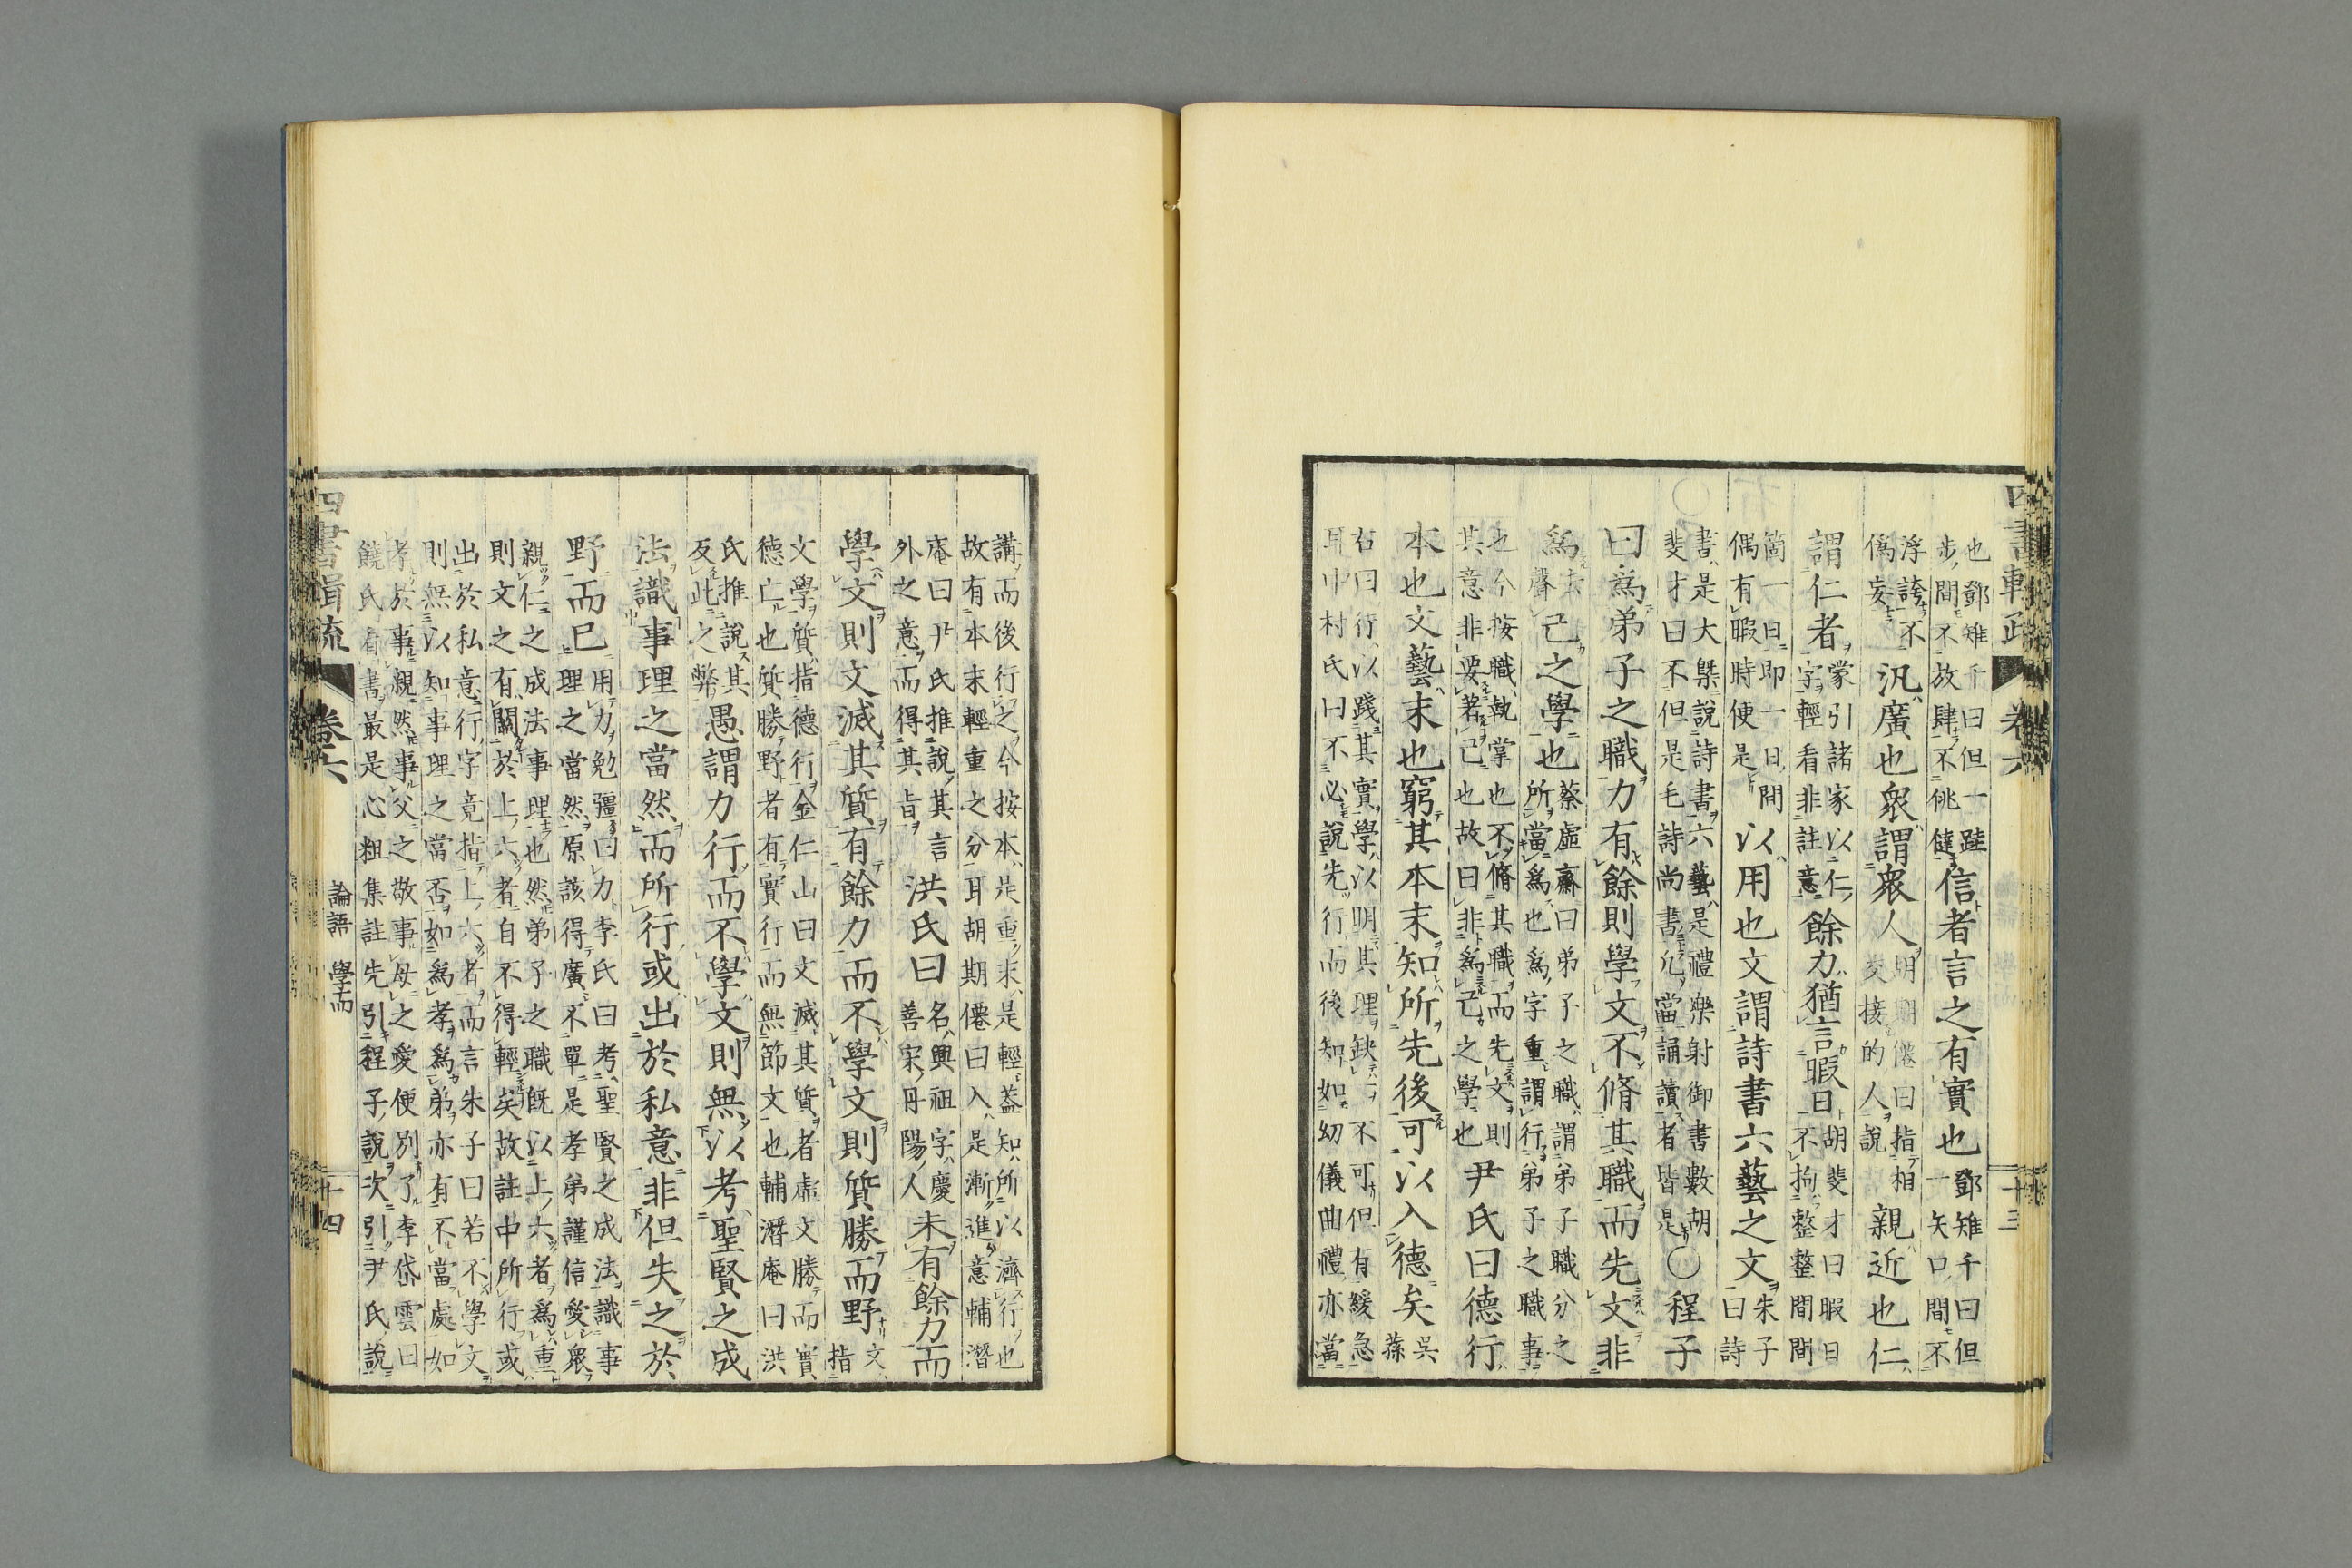 也鄧雉千曰但一跬
步間不放肆不佻健
信者言之有實也
鄧雉千曰但
一矢口間不
浮誇不
僞妄
汎廣也衆謂衆人
胡期僊曰指相
交接的人說
親近也仁
謂仁者
蒙引諸家以仁
字輕看非註意
餘力猶言暇日
胡斐才曰暇日
不拘整整間間
箇一日即一日間
偶有暇時便是
以用也文謂詩書六藝之文
朱子
曰詩
書是大槩說詩書六藝是禮樂射御書數胡
斐才曰不但是毛詩尚書凡當誦讀者皆是
〇程子
曰爲弟子之職力有餘則學文不脩其職而先文非
爲
去
聲
己之學也
蔡虛齋曰弟子之職謂弟子職分之
所當爲也爲字重謂行弟子之職事
也今按職執掌也不脩其職而先文則
其意非要著己也故曰非爲己之學也
尹氏曰德行
本也文藝末也窮其本末知所先後可以入德矣
吳
蓀
右曰行以踐其實學以明其理缺一不可但有緩急
耳中村氏曰不必說先行而後知如幼儀曲禮亦當
四書輯疏 卷六 十三
講而後行之今按本是重求是輕蓋知所以濟行也
故有本末輕重之分耳胡期僊曰入是漸進意輔潛
庵曰尹氏推說其言
外之意而得其旨
洪氏曰
名興祖字慶
善宋丹陽人
未有餘力而
學文則文滅其質有餘力而不學文則質勝而野
文
指
文學質指德行金仁山曰文滅其質者虛文勝而實
德亡也質勝野者有實行而無節文也輔潛庵曰洪
氏推說其
反此之弊
愚謂力行而不學文則無以考聖賢之成
法識事理之當然而所行或出於私意非但失之於
野而已
用力勉彊曰力李氏曰考聖賢之成法識事
理之當然原該得廣不單是孝弟謹信愛衆
親仁之成法事理也然弟子之職既以上六者爲重
則文之有關於上六者自不得輕矣故註中所行或
出於私意行字竟指上六者而言朱子曰若不學文
則無以知事理之當否如爲孝爲弟亦有不當處如
孝於事親然事父之敬事母之愛便別了李岱雲曰
饒氏看書最是心粗集註先引程子說次引尹氏說
四書輯疏 卷六 論語 學而 十四